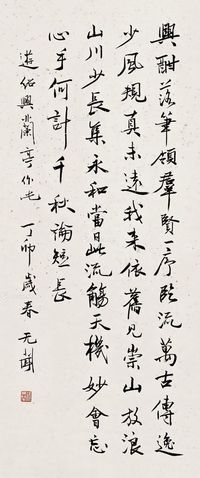 興酣落筆領羣賢一序臨流萬古傳逸
少風規真未遠我来依舊見崇山放浪
山川少長集永和當日此流觴天機妙會忘
心手何計千秋論短長
遊紹興蘭亭作也 丁卯歲春 无聞